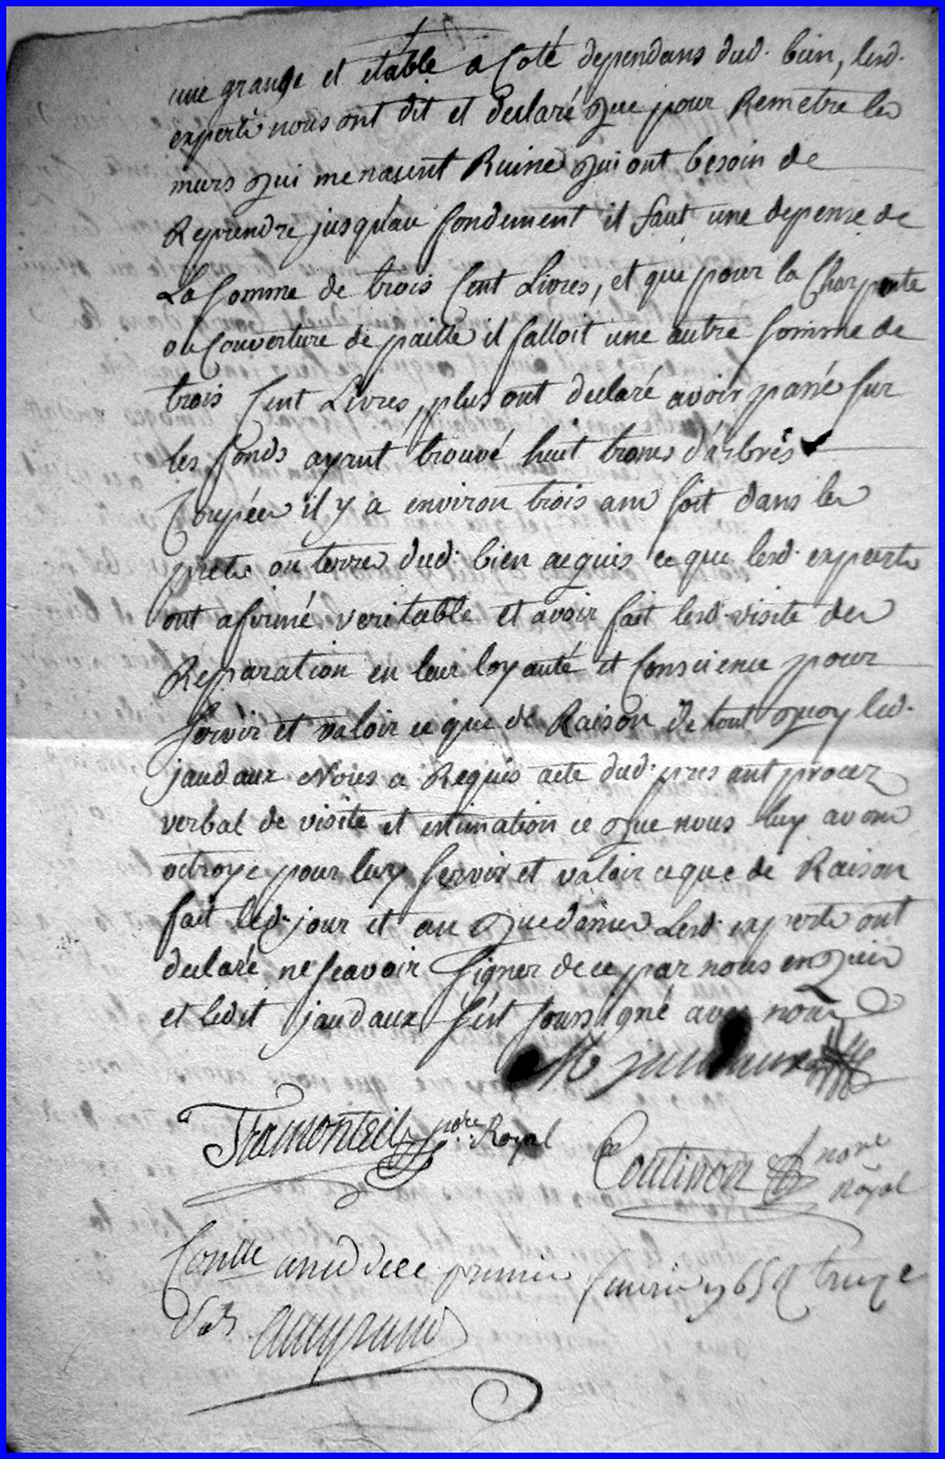 une grange et etable a Coté dependans dud. bien, lesd.
experts nous ont dit et declaré que pour Remetre les
murs qui menasent Ruine qui ont besoin de
Reprendre jusquau fondement il faut une depense de
La Somme de trois Cent Livres, et que pour la Charpente
ou Couverture de paille il falloit une autre somme de
trois Cent Livres, plus ont declaré avoir passé sur
les fonds ayant trouvé huit troncs d'arbres
Coupées il y a environ trois ans soit dans les
prets ou terres dud. bien acquis ce que lesd. experts
ont afirmé veritable et avoir fait lesd. visite des
Reparation en leur loyauté et Conscience pour
servir et valoir ce que de Raison de tout quoy led.
jaudaux Nous a Requis acte dud. present procez
verbal de visite et estimation ce que nous luy avons
octroye pour luy servir et valoir ce que de Raison
fait led. jour et an que dessus Lesd. experts ont
declaré ne scavoir signer de ce par nous enquis
et ledit jaudaux s'est soussigné avec nous
Tramonteil nore. Royal
Coutinon nore
Royal
premier